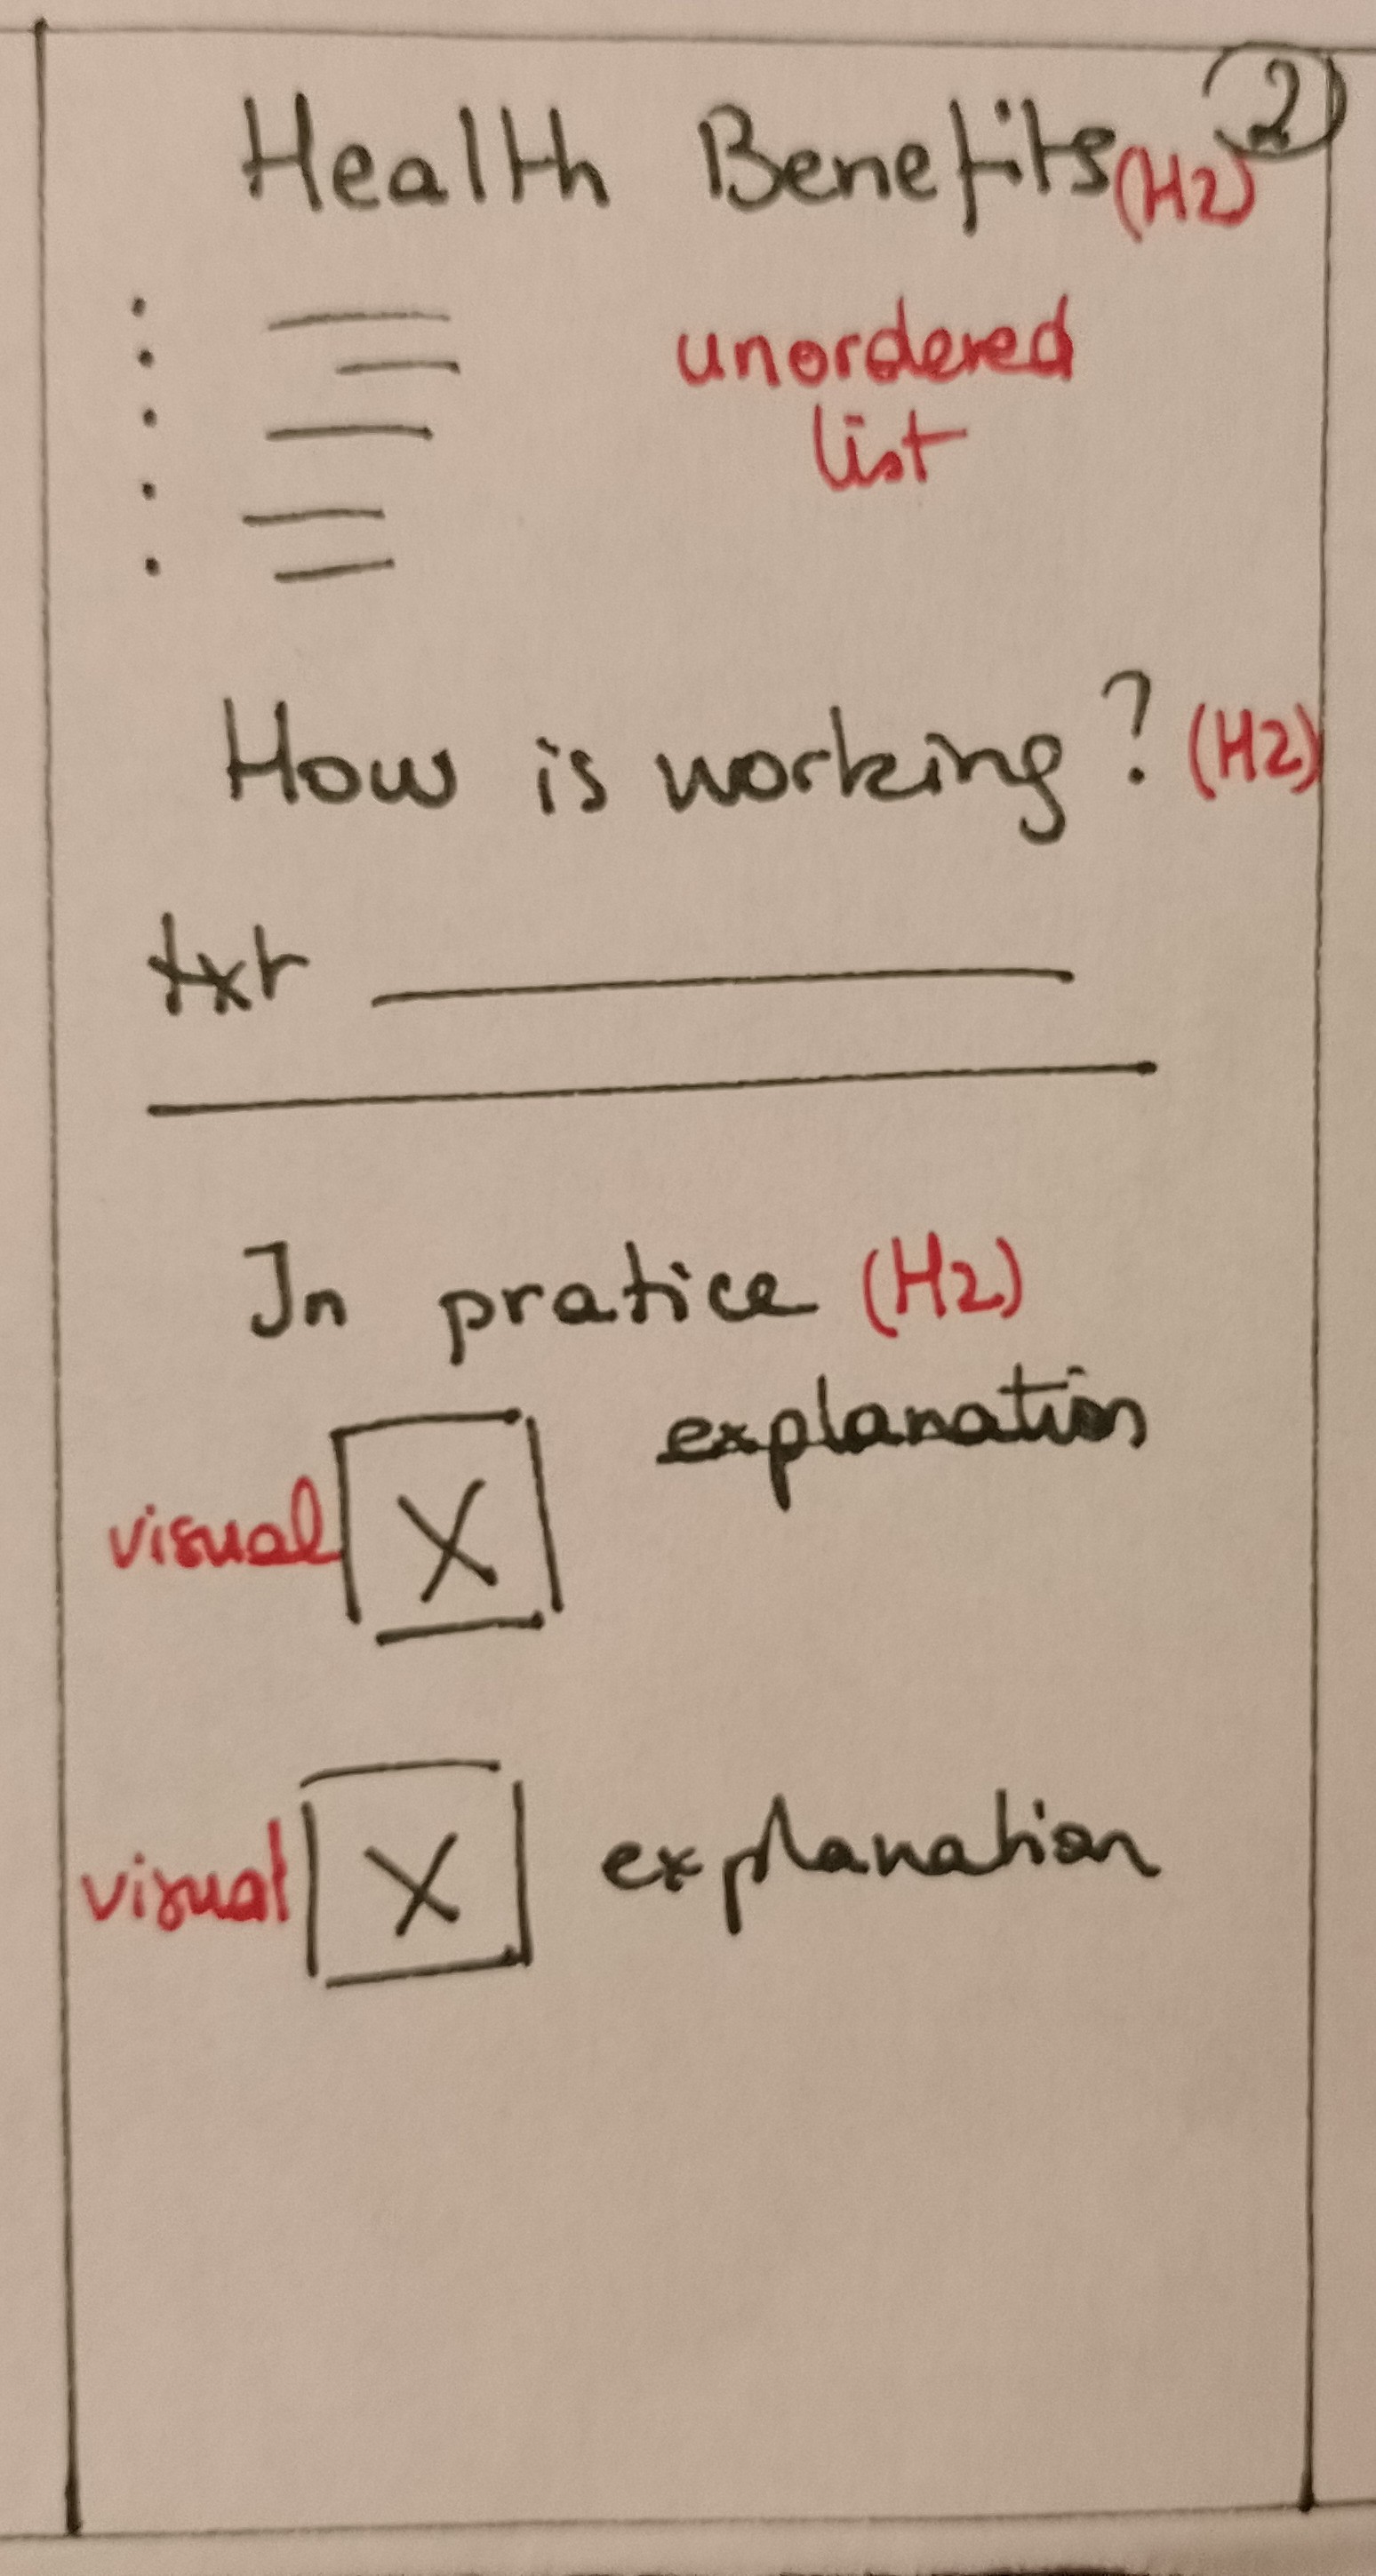 2
Health Benefits (H2)
unordered
list
How is working? (H2)
txt
In pratice (H2)
explanation
visual X
visual X explanation